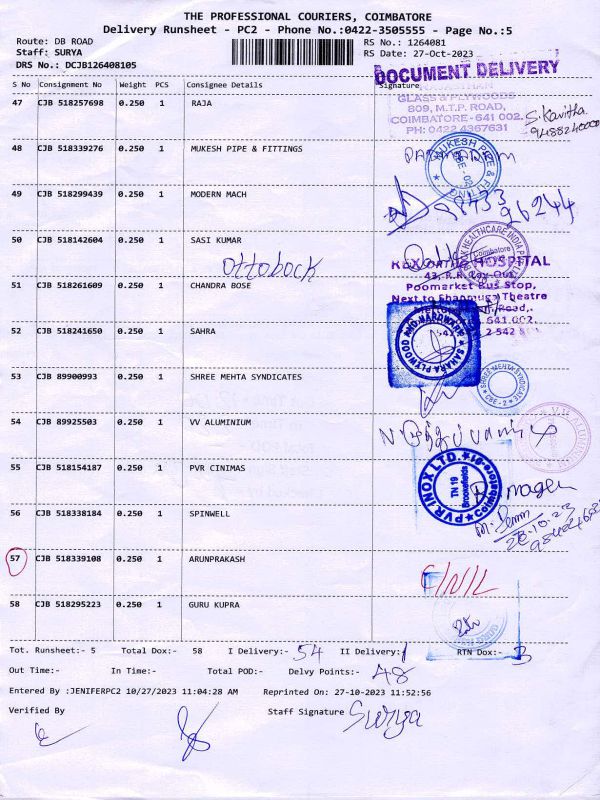 THE PROFESSIONAL COURIERS, COIMBATORE
Delivery Runsheet - PC2 - Phone No.:0422-3505555 - Page No.:5
Route: DB ROAD RS No.: 1264081
Staff: SURYA RS Date: 27-Oct-2023
DRS No.: DCJB126408105
DOCUMENT DELIVERY
S No Consignment No Weight PCS Consignee Details Signature
47 CJB 518257698 0.250 1 RAJA
GLASS & PLYWOODS
809, M.T.P. ROAD,
COIMBATORE - 641 002.
PH: 0422 4367631
S. Kavitha
48 CJB 518339276 0.250 1 MUKESH PIPE & FITTINGS
MUKESH PIPE & FITTING
49 CJB 518299439 0.250 1 MODERN MACH
96244
50 CJB 518142604 0.250 1 SASI KUMAR
Ottobock
HEALTHCARE INDIA
Coimbatore
REX ORTHO HOSPITAL
43, P.R. Lay-Out,
Poomarket Bus Stop,
Next to Shanmuga Theatre
51 CJB 518261609 0.250 1 CHANDRA BOSE
52 CJB 518241650 0.250 1 SAHRA
SAHARA PLYWOOD AND HARDWARE
53 CJB 89900993 0.250 1 SHREE MEHTA SYNDICATES
SHREE MEHTA SYNDICATE
CBE - 2
54 CJB 89925503 0.250 1 VV ALUMINIUM
55 CJB 518154187 0.250 1 PVR CINIMAS
PVR INOX LTD.
TN 19
Brookefields
56 CJB 518338184 0.250 1 SPINWELL
28.10.23
57 CJB 518339108 0.250 1 ARUNPRAKASH
58 CJB 518295223 0.250 1 GURU KUPRA
Tot. Runsheet:- 5 Total Dox:- 58 I Delivery:- 54 II Delivery:- 1 RTN Dox:- 3
Out Time:- In Time:- Total POD:- Delvy Points:- 48
Entered By :JENIFERPC2 10/27/2023 11:04:28 AM Reprinted On: 27-10-2023 11:52:56
Verified By Staff Signature Surya